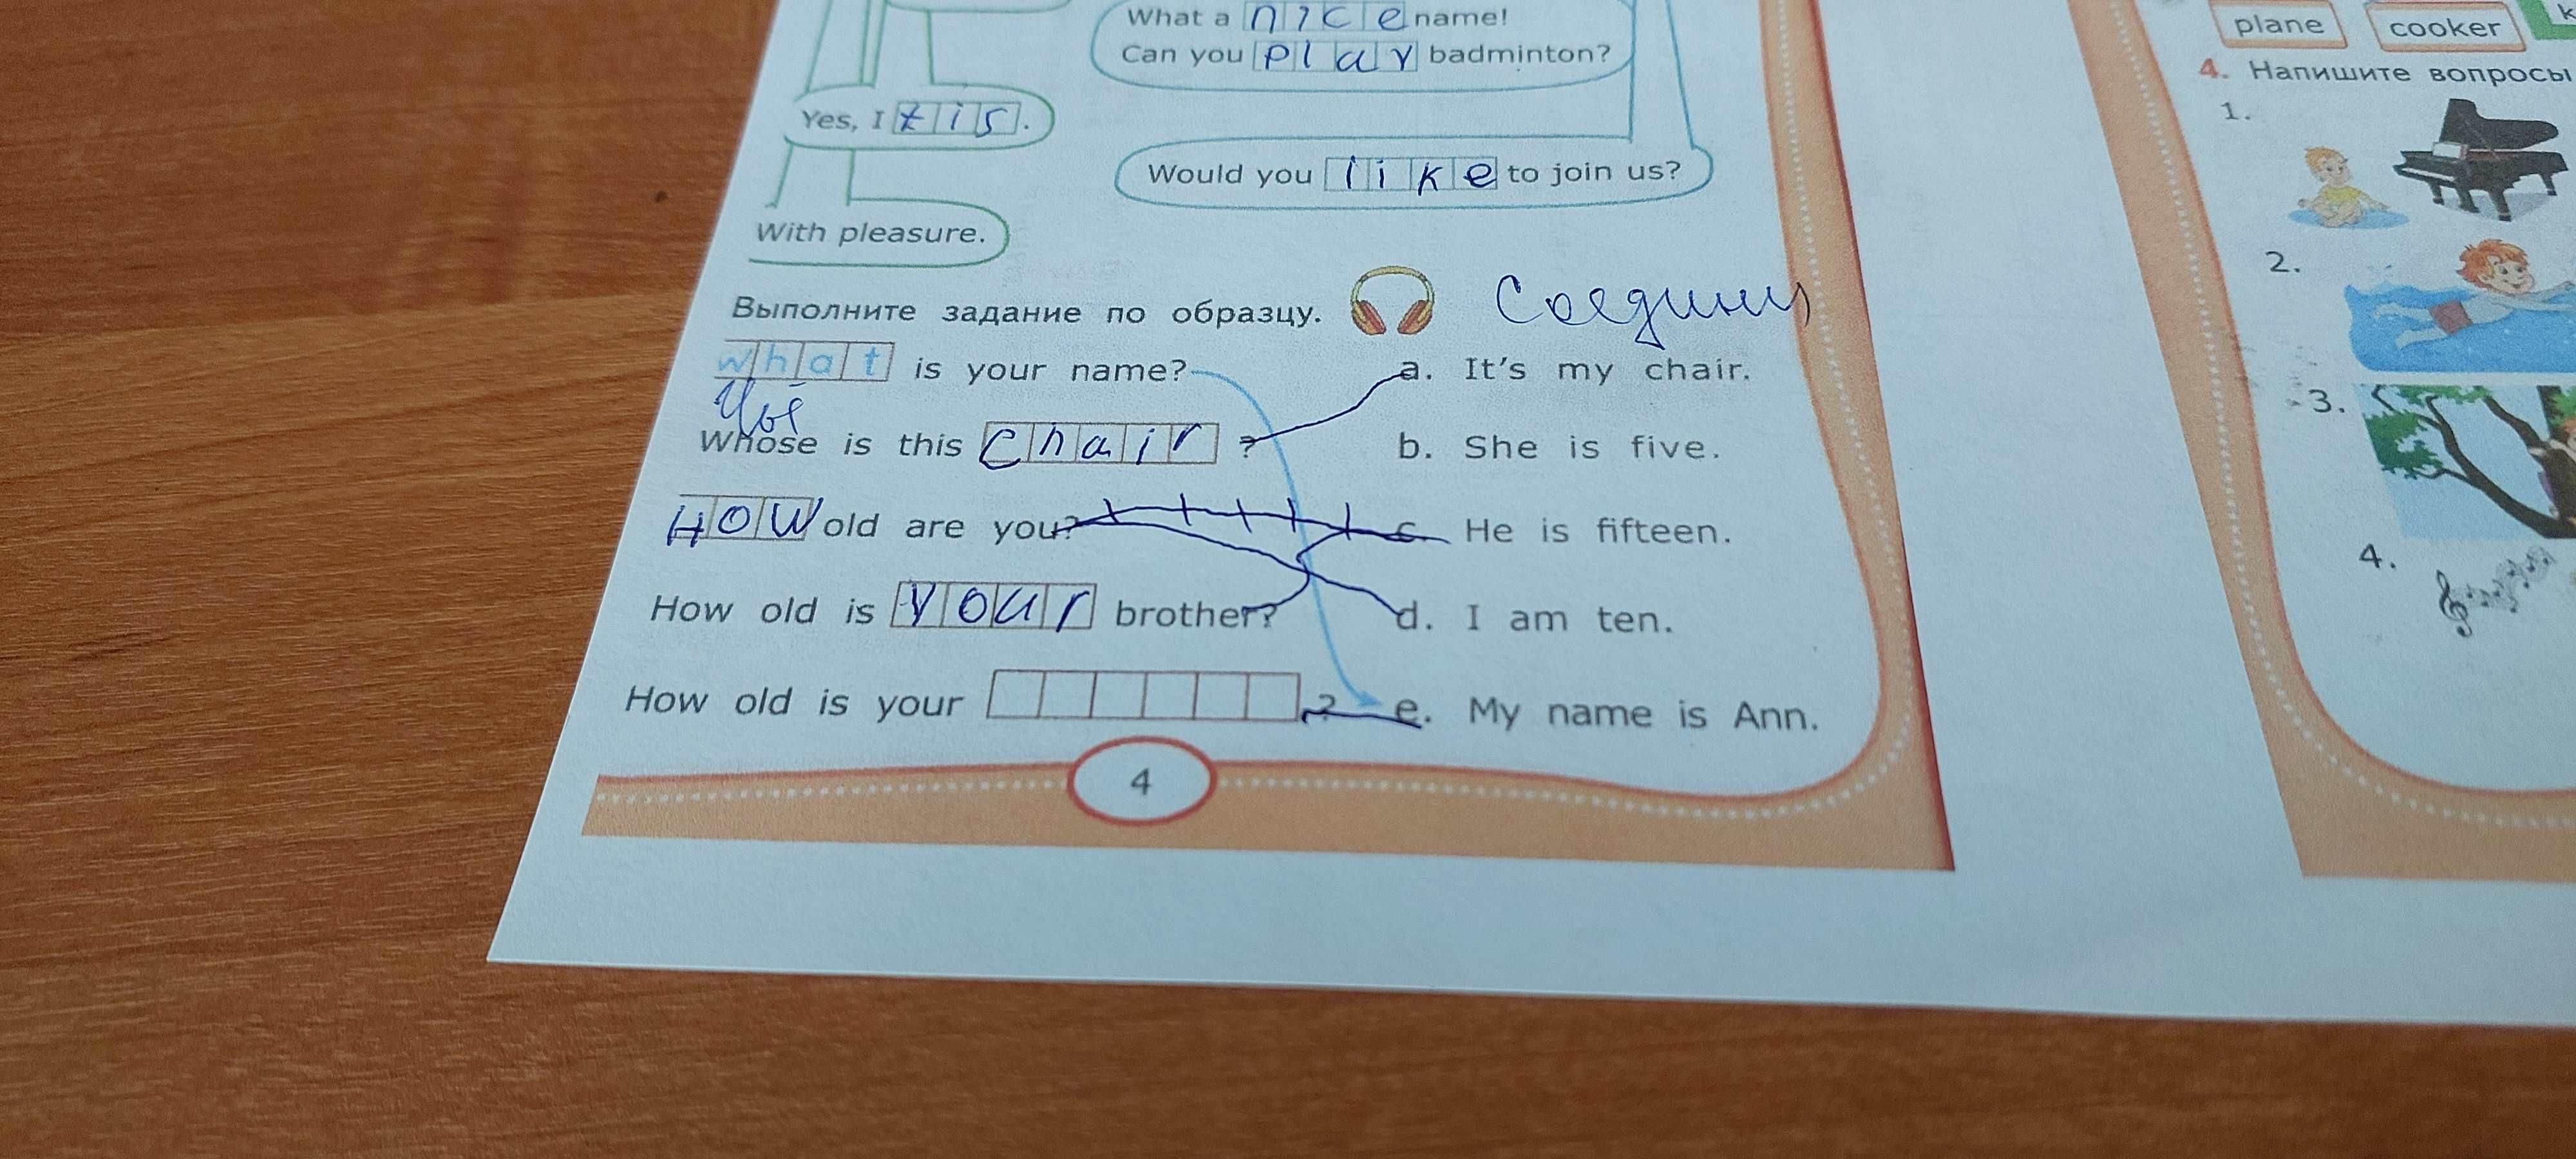 What a nice name!
Can you play badminton?
Yes, I tis.
Would you like to join us?
With pleasure.
Выполните задание по образцу. Соедини
what is your name?
a. It's my chair.
Чьё
Whose is this chair ?
b. She is five.
How old are you?
c. He is fifteen.
How old is your brother?
d. I am ten.
How old is your ?
e. My name is Ann.
4
plane
cooker
k
4. Напишите вопросы
1.
2.
3.
4.